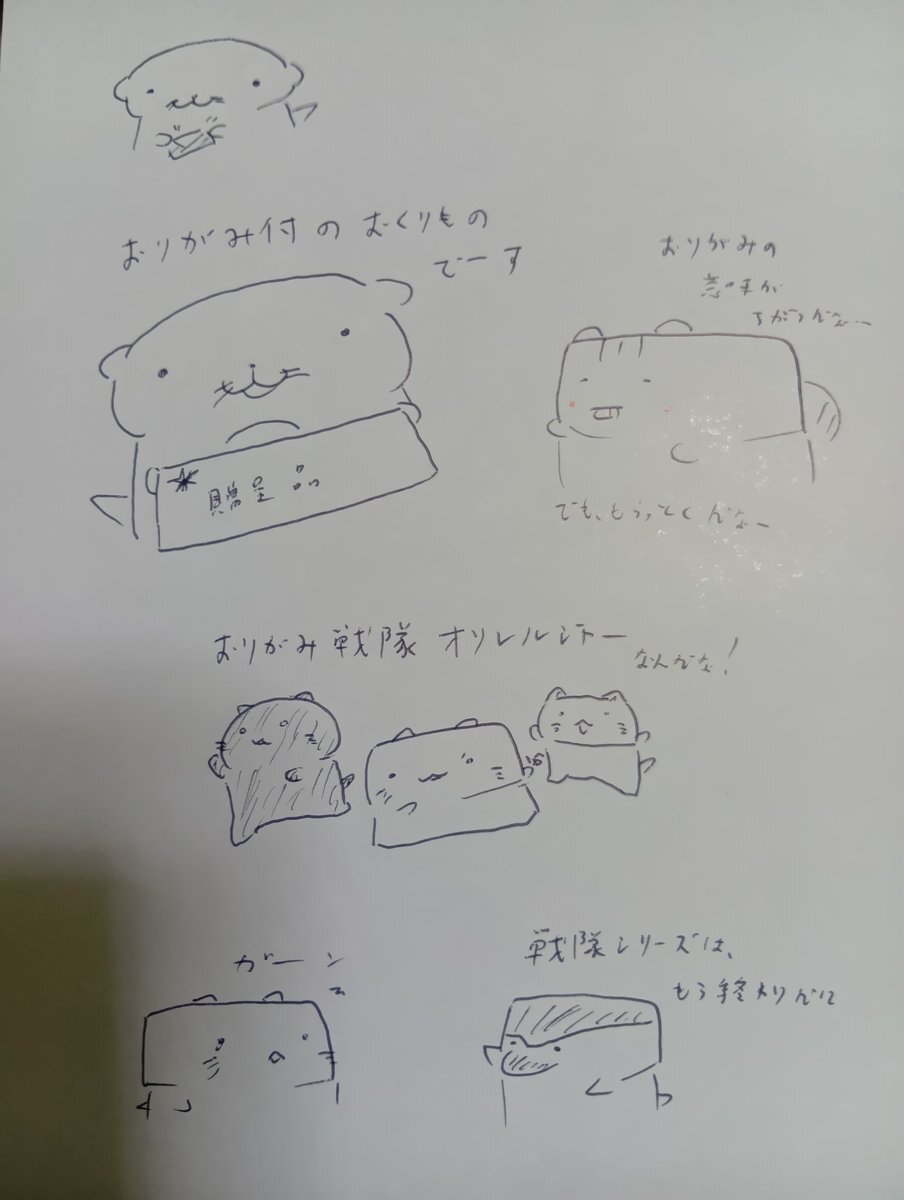 おりがみ付のおくりもの
でーす
贈呈品
おりがみの
意味が
ちがうんだな…
でも、もらっとくんだなー
おりがみ戦隊 オリレルジャー
なんだな!
ガーン
戦隊シリーズは、
もう終わりだに